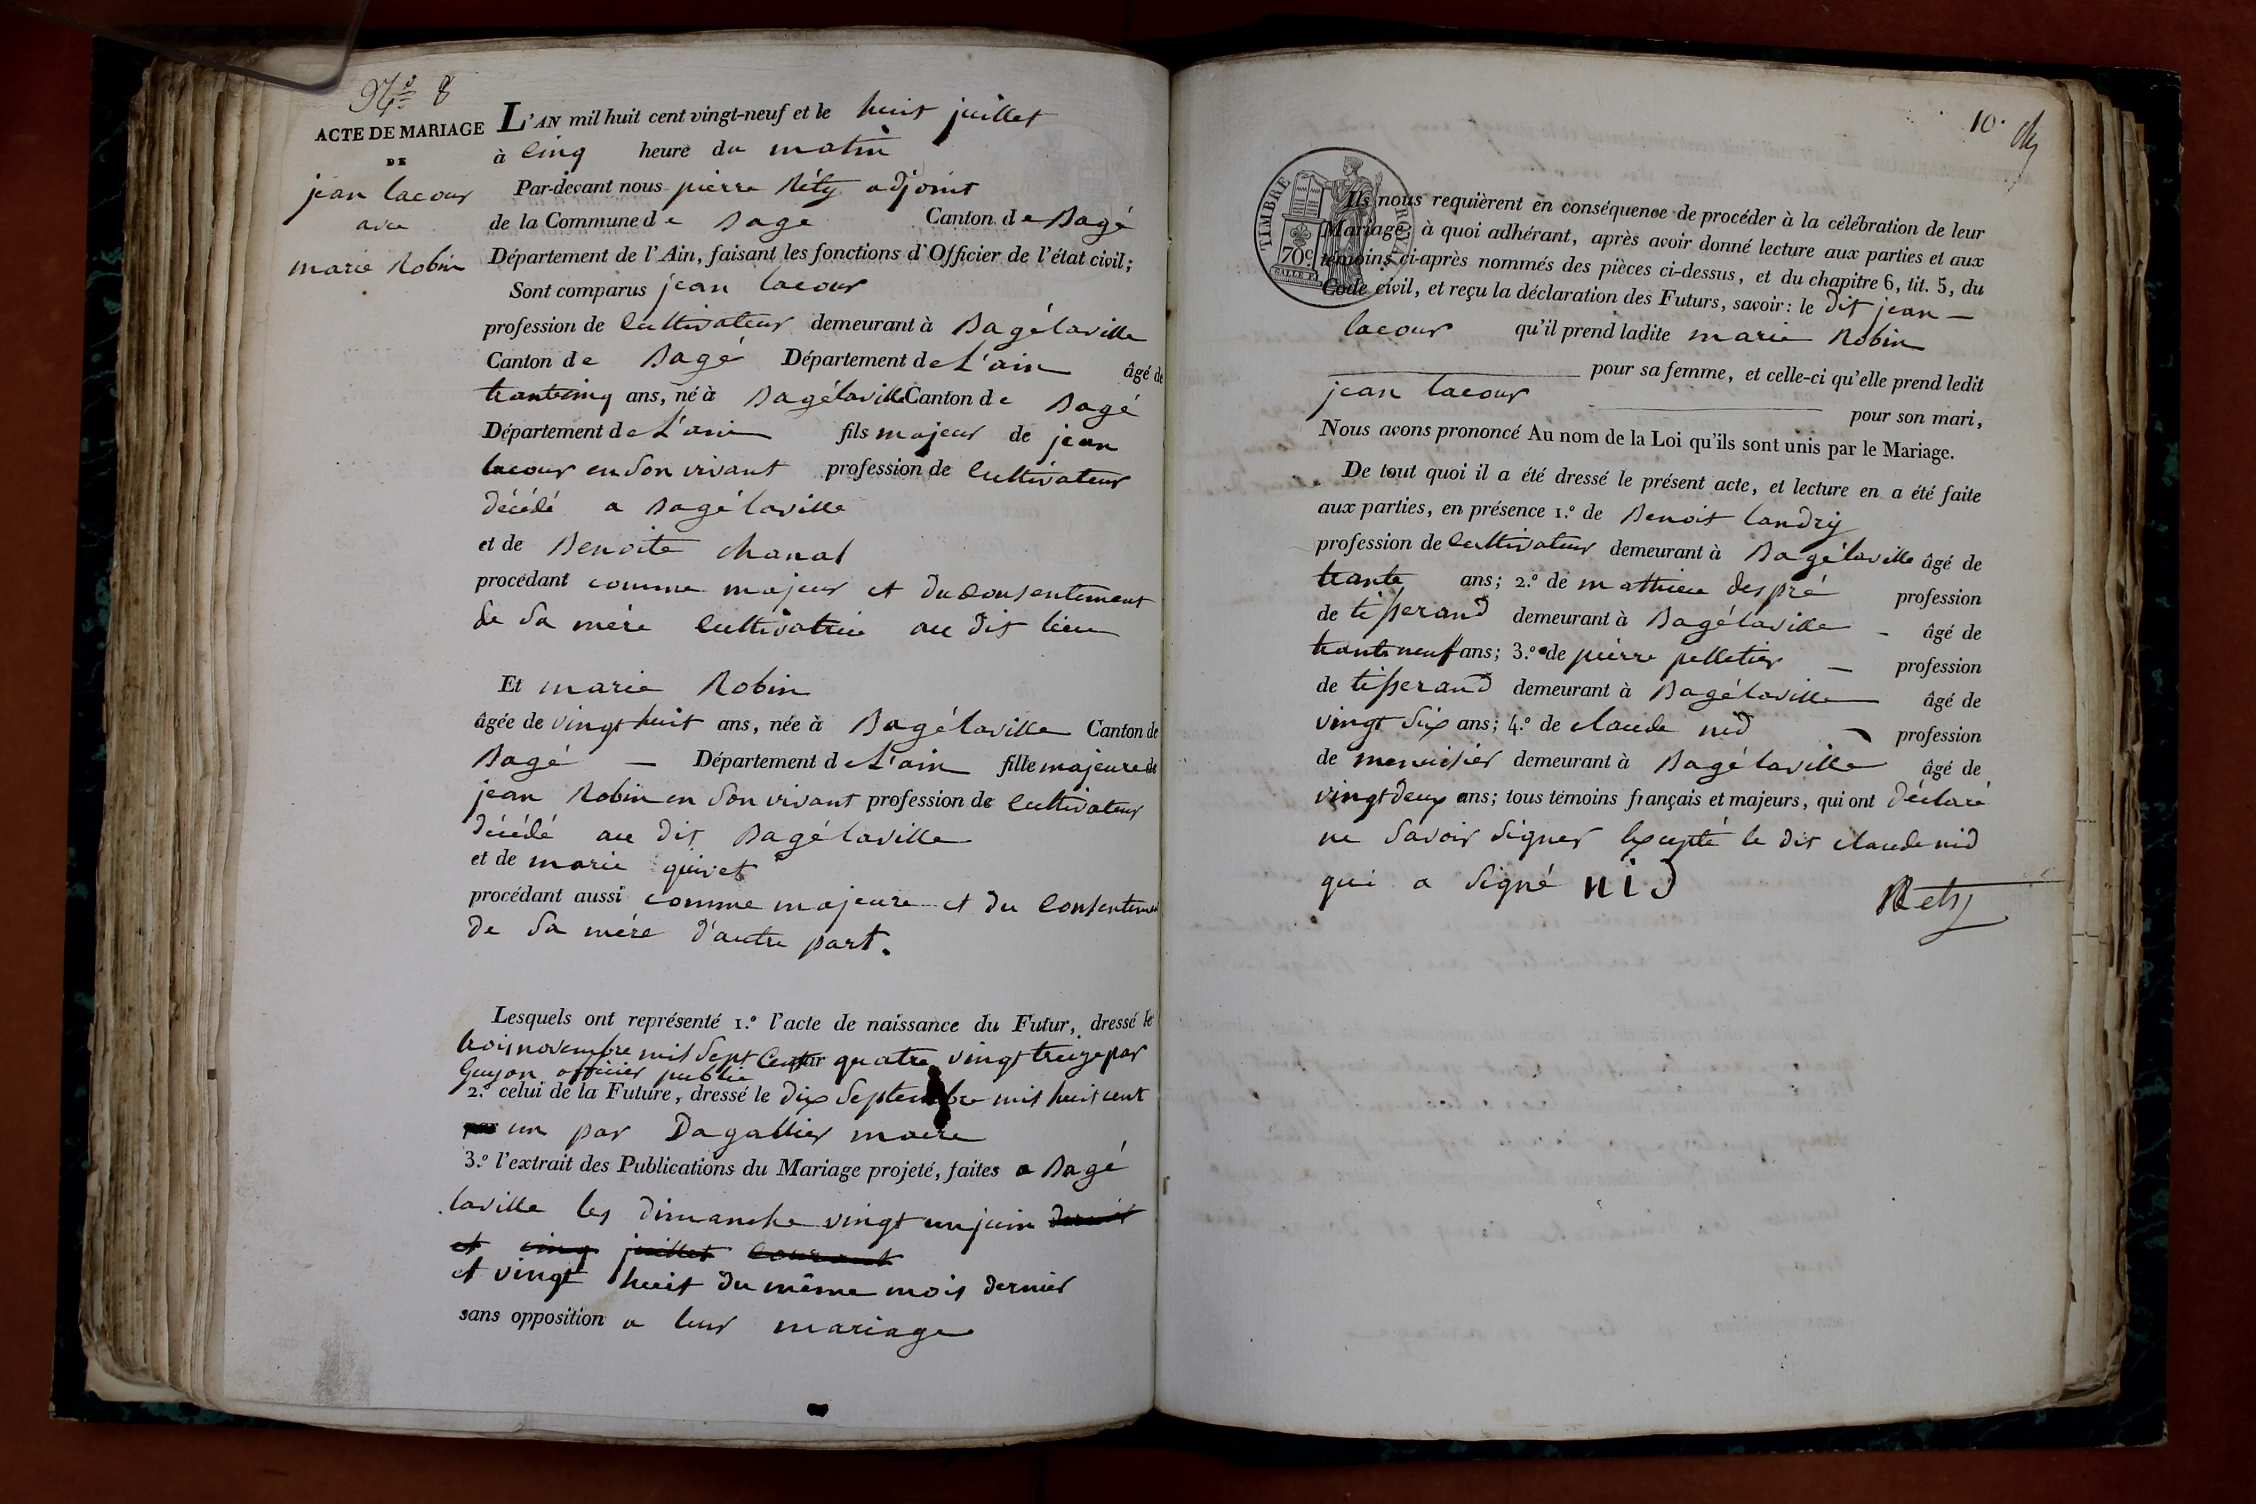 N.o 8
ACTE DE MARIAGE
DE
jean lacour
avec
marie Robin
L'AN mil huit cent vingt-neuf et le huit juillet
à cinq heure du matin
Par-devant nous pierre Réty adjoint
de la Commune de Bagé Canton de Bagé
Département de l'Ain, faisant les fonctions d'Officier de l'état civil;
Sont comparus jean lacour
profession de cultivateur demeurant à Bagélaville
Canton de Bagé Département de L'ain âgé de
trantcinq ans, né à Bagélaville Canton de Bagé
Département de L'ain fils majeur de jean
lacour en son vivant profession de cultivateur
décédé a Bagélaville
et de Benoite chanal
procédant comme majeur et du consentement
de sa mère cultivatrice au dit lieu
Et marie Robin
âgée de vingt huit ans, née à Bagélaville Canton de
Bagé — Département de L'ain fille majeure de
jean Robin en son vivant profession de cultivateur
décédé au dit Bagélaville
et de marie guivet
procédant aussi comme majeure et du consentemen
de sa mère d'autre part.
Lesquels ont représenté 1.º l'acte de naissance du Futur, dressé le
trois novembre mil sept cent quatre vingt treize par
Guyon officier public
2.º celui de la Future, dressé le dix septembre mil huit cent
un par Dagallier maire
3.º l'extrait des Publications du Mariage projeté, faites a Bagé
laville les dimanche vingt un juin dernier
et cinq juillet courant
et vingt huit du même mois dernier
sans opposition a leur mariage
10.
TIMBRE ROYAL
70c.
Ils nous requièrent en conséquence de procéder à la célébration de leur
Mariage; à quoi adhérant, après avoir donné lecture aux parties et aux
témoins ci-après nommés des pièces ci-dessus, et du chapitre 6, tit. 5, du
Code civil, et reçu la déclaration des Futurs, savoir: le dit jean —
lacour qu'il prend ladite marie Robin
pour sa femme, et celle-ci qu'elle prend ledit
jean lacour pour son mari,
Nous avons prononcé Au nom de la Loi qu'ils sont unis par le Mariage.
De tout quoi il a été dressé le présent acte, et lecture en a été faite
aux parties, en présence 1.º de Benoit landry
profession de cultivateur demeurant à Bagélaville âgé de
trante ans; 2.º de mathieu despré profession
de tisserand demeurant à Bagélaville — âgé de
trantneuf ans; 3.º de pierre pelletier — profession
de tisserand demeurant à Bagélaville âgé de
vingt six ans; 4.º de claude nid — profession
de menuisier demeurant à Bagélaville âgé de
vingtdeux ans; tous témoins français et majeurs, qui ont déclaré
ne savoir signer excepté le dit claude nid
qui a signé nid
Réty